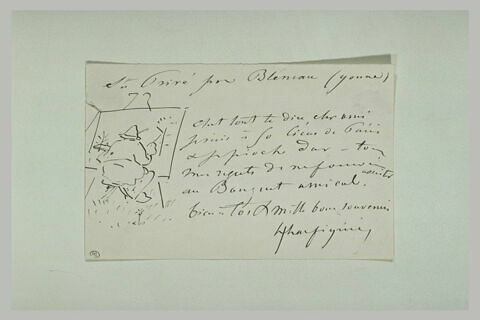 St Privé par Bleneau (yonne)
c'est tout te dire, cher ami
suis à 50 lieues de Paris
mes regrets de ne pouvoir assister
au Banquet amical.
bien à toi & mille bons souvenirs
Harpignies